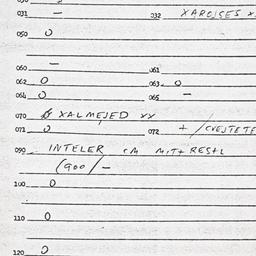 031 — 032 XAROISES X
050 0
—
060 061
062 0 063 0
064 0 065 —
070 XALMEJED XX
071 0 072 + /
090 INTELER CM MITT RESTL
(900/—
100 0
110 0
120 0